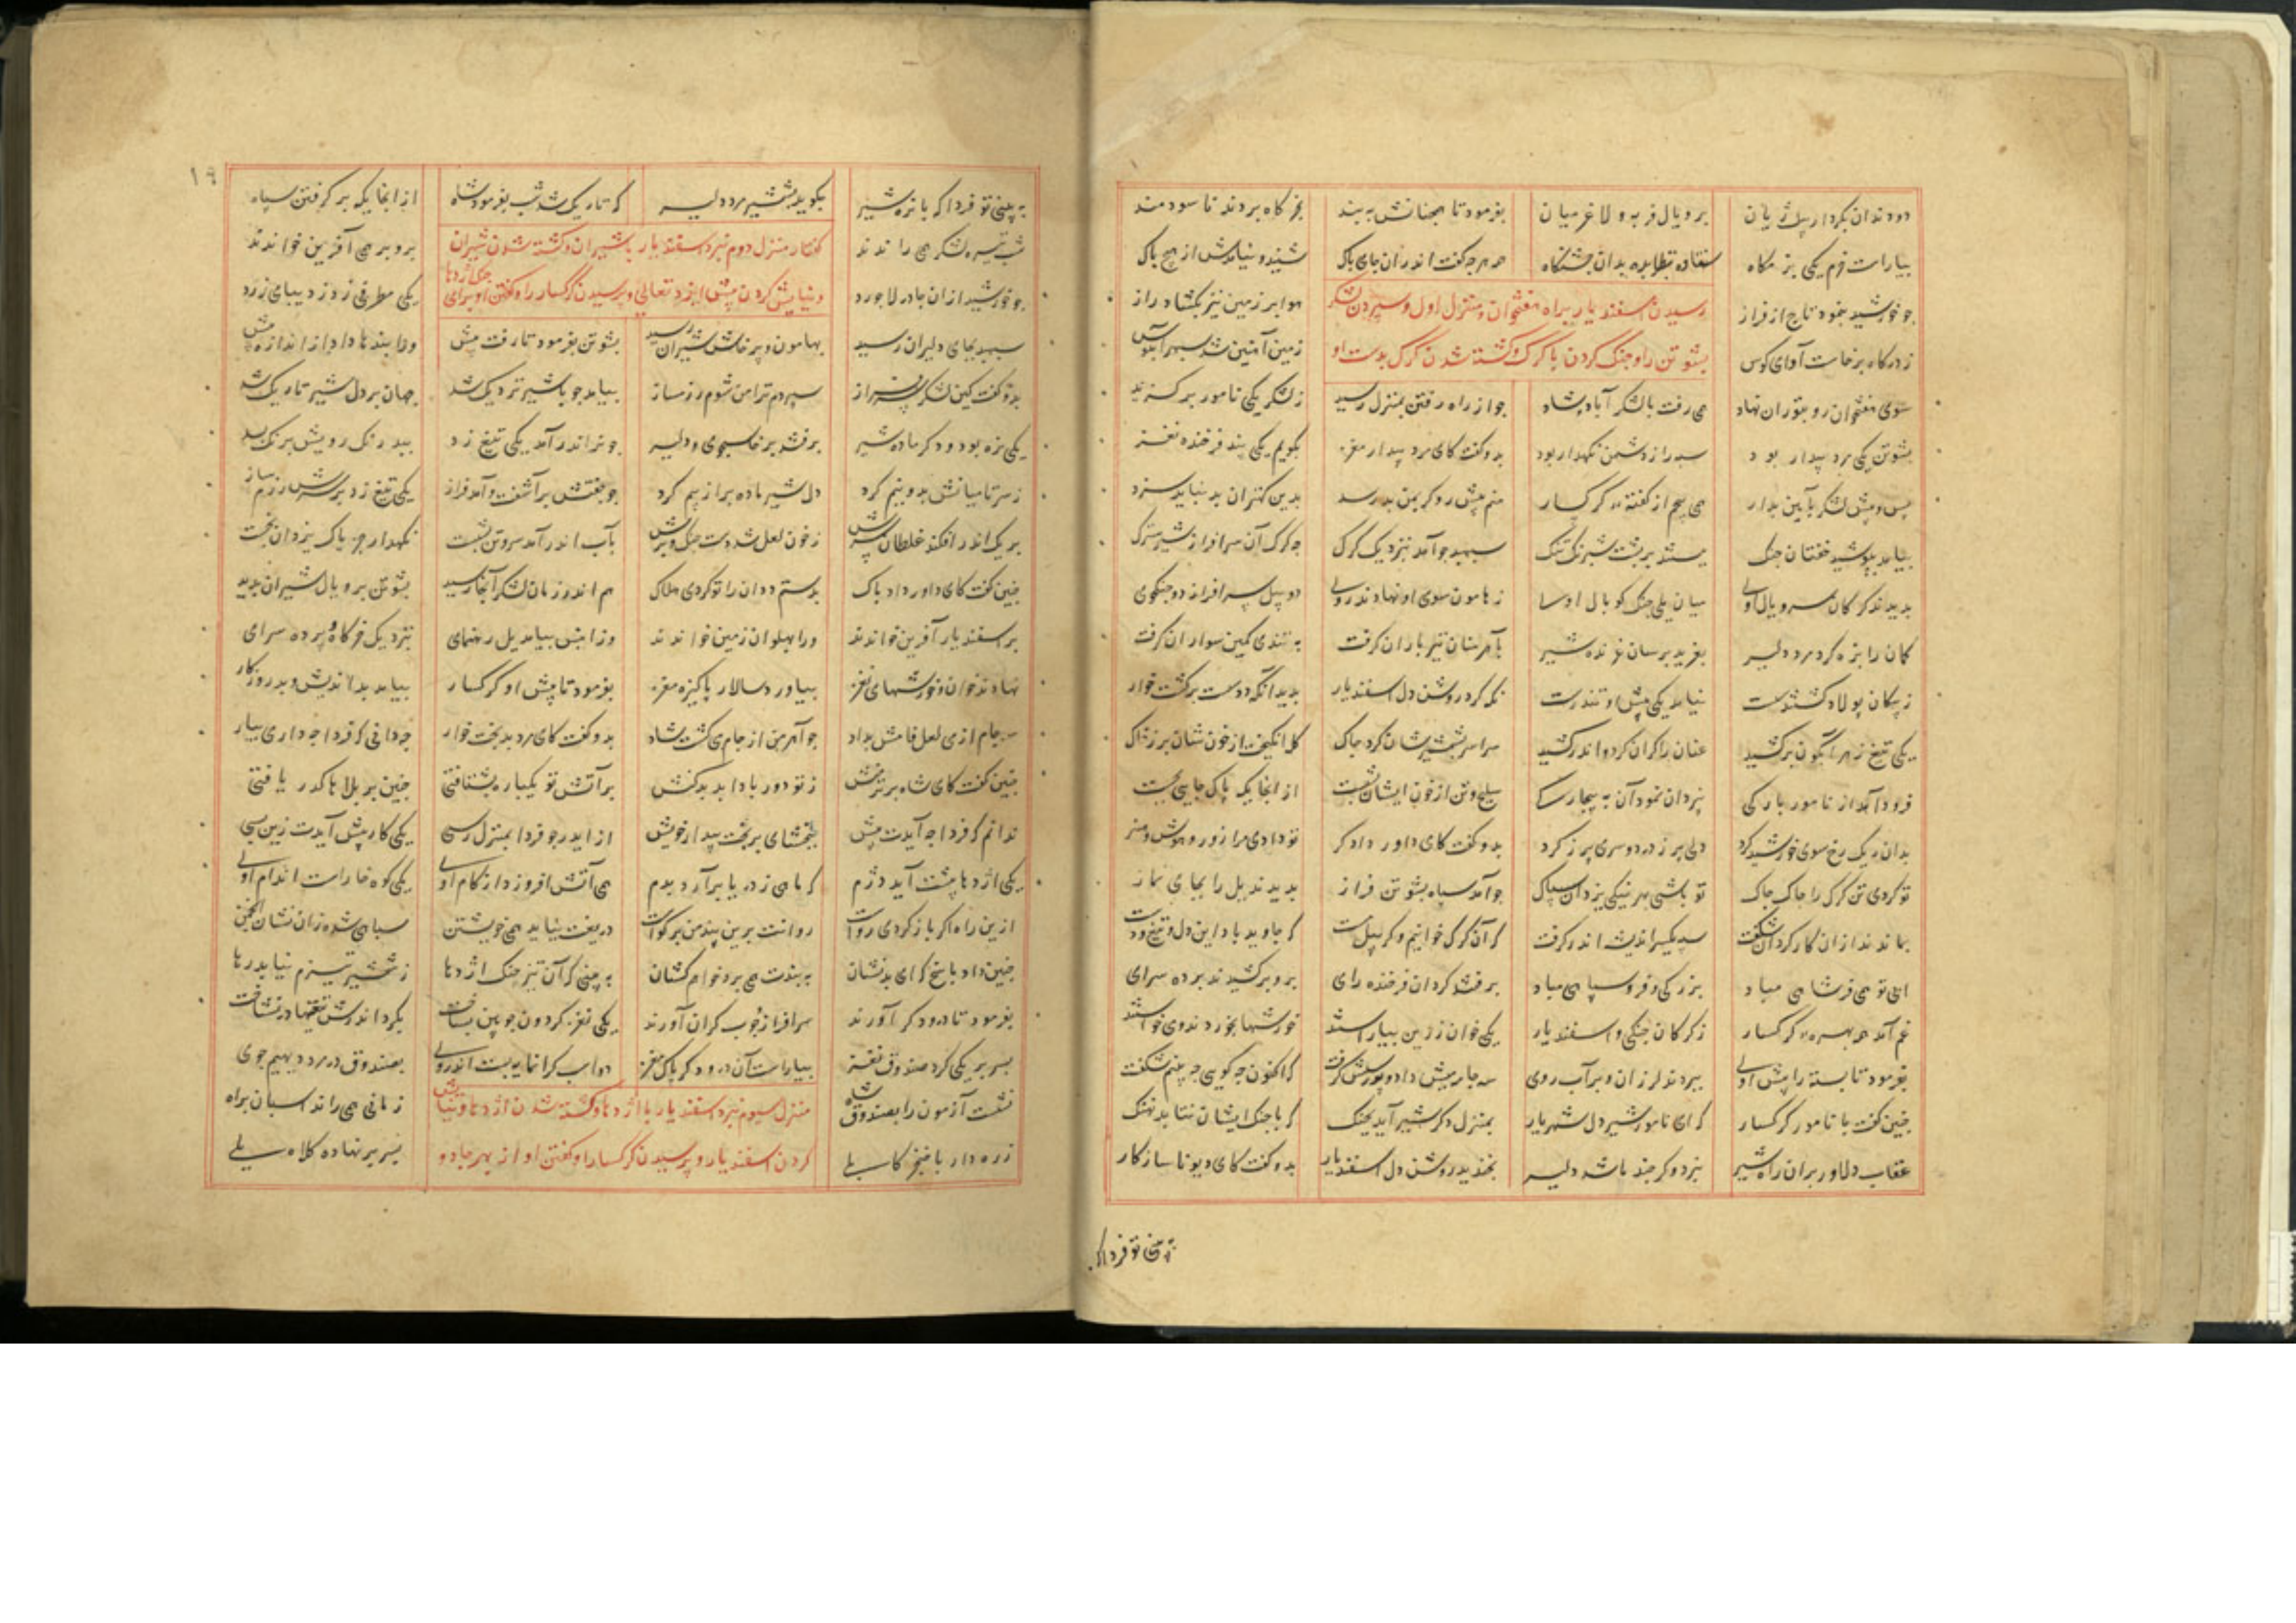 دو دندان بکردار پیل ژیان بر و یال فربه و لاغر میان بفرمود تا همچنانش به بند بخرگاه بردند تا سودمند
بیاراست خرم یکی بزمگاه بدان جشنگاه همه هرچه گفت اندران جای پاک شنید و نیامدش از هیچ باک
چو خورشید بنمود تاج از فراز هوا بر زمین نیز بگشاد راز
رسیدن اسفندیار براه هفتخوان و منزل اول و سپردن لشکر
ز درگاه برخاست آوای کوس زمین آهنین شد سپهر آبنوس
بشوتن را و جنگ کردن با گرگ و کشته شدن گرگ بدست او
سوی هفتخوان رو بتوران نهاد همی رفت با لشکر آباد و شاد چو از راه رفتن بمنزل رسید ز لشکر یکی نامور برگزید
بشوتن یکی مرد بیدار بود سپه را ز دشمن نگهدار بود بدو گفت کای مرد بیدار مغز بگویم یکی پند فرخنده نغز
پس و پیش لشکر بآیین بدار همی پیچم از گفته گرگسار منم پیش رو گر بمن بد رسد بدین کهتران بد نیاید سزد
بیامد بپوشید خفتان جنگ ببستند بر پشت شبرنگ تنگ سپهبد چو آمد نزدیک گرگ چه گرگ آن سرافراز شیر سترگ
بدیدند گرگان سر و یال اوی میان یلی جنگ کوپال او ز هامون سوی او نهادند روی دو پیل سرافراز دو جنگجوی
کمان را بزه کرد مرد دلیر بغرید برسان غرنده شیر بآهرمنان تیر باران گرفت به تندی کمین سواران گرفت
ز پیکان پولاد گشتند سست نیامد یکی پیش او تندرست نگه کرد روشن دل اسفندیار بدید آنکه دد سست برگشت خوار
یکی تیغ زهر آبگون برکشید عنان را گران کرد و اندر کشید سراسر بشمشیرشان کرد چاک گل انگیخت از خون شان بر ز خاک
فرود آمد از نامور بارگی به یزدان نمود آن به بیچارگی سلیح و تن از خون ایشان بشست از آنجا یکی پاک جایی بجست
بدان ریگ رخ سوی خورشید کرد دلی پر ز درد و سری پر ز گرد بدو گفت کای داور دادگر تو دادی مرا زور و هوش و هنر
تو کردی تن گرگ را چاک چاک تو باشی بهر نیکی یزدان پاک چو آمد سپاه بشوتن فراز بدیدند یل را بجای نماز
بماندند از آن کار گردان شگفت سپه یکسر اندیشه اندر گرفت که آن گرگ خوانیم و گر پیل مست که جاوید باد این دل و تیغ و دست
ابی تو همی فر شاهی مباد بزرگی و فر و سپاهی مباد برفتند گردان فرخنده رای برو برکشیدند پرده سرای
غم آمد همه بهره گرگسار ز گرگان جنگی و اسفندیار یکی خوان زرین بیاراستند خورشها بخوردند و می خواستند
بفرمود تا بسته را پیش اوی ببردند لرزان و پر آب روی سه جام میش داد و پرسش گرفت که اکنون چه گویی چه بینم شگفت
چنین گفت با نامور گرگسار که ای نامور شیر دل شهریار بمنزل دگر شیر آید بجنگ که با جنگ ایشان نتابد نهنگ
عقاب دلاور بران راه شیر نپرد و گر چند باشد دلیر بخندید روشن دل اسفندیار بدو گفت کای دیو ناسازگار
به بینی تو فردا که
۱۶
به بینی تو فردا که با نره شیر بگوید بشمشیر مرد دلیر که تاریک شد شب بفرمود شاه از آنجا یکه بر گرفتن سپاه
شب تیره لشکر همی راندند برو بر همی آفرین خواندند
گفتار منزل دوم نبرد اسفندیار با شیران و کشته شدن شیران
چو خورشید از آن چادر لاجورد یکی مطرفی زد ز دیبای زرد
و نیایش کردن پیش ایزد تعالی و پرسیدن گرگسار را و گفتن او برای جنگ اژدها
سپهبد بجای دلیران رسید بهامون و پرخاش شیران رسید بشوتن بفرمود تا رفت پیش ورا پندها داد از اندازه بیش
بدو گفت کین لشکر سرفراز سپردم ترا من شوم رزم ساز بیامد چو با شیر نزدیک شد جهان بر دل شیر تاریک شد
یکی نره بود و دگر ماده شیر برفتند پرخاشجوی و دلیر چو نر اندر آمد یکی تیغ زد ببد رنگ رویش برنگ بسد
ز سر تا میانش بدو نیم کرد دل شیر ماده پر از بیم کرد چو جفتش برآشفت و آمد فراز یکی تیغ زد بر سرش رزم ساز
بریک اندر افکند غلطان سرش ز خون لعل شد دست و جنگی برش بآب اندر آمد سر و تن بشست نگهدار جز پاک یزدان نجست
چنین گفت کای داور داد پاک بدستم ددان را تو کردی هلاک هم اندر زمان لشکر آنجا رسید بشوتن بر و یال شیران بدید
بر اسفندیار آفرین خواندند ورا پهلوان زمین خواندند وزان پس بیامد یل رهنمای نزدیک خرگاه و پرده سرای
نهادند خوان و خورشهای نغز بیاورد سالار پاکیزه مغز بفرمود تا پیش او گرگسار بیامد بداندیش و بد روزگار
سه جام از می لعل فامش بداد چو آهرمن از جام می گشت شاد بدو گفت کای مرد بدبخت خوار چه دانی که فردا چه داری بیار
چنین گفت کای شاه برتر منش ز تو دور بادا بد بدکنش بر آتش تو یکباره بشتافتی چنین بر بلاها گذر یافتی
ندانم که فردا چه آیدت پیش ببخشای بر بخت بیدار خویش از ایدر چو فردا بمنزل رسی یکی کار پیش آیدت زین بسی
یکی اژدها پیشت آید دژم که ماهی ز دریا برآرد بدم همی آتش افروزد از کام اوی یکی کوه خارا است اندام اوی
ازین راه اگر باز گردی رواست روانت برین پند من بر گواست دریغت نیاید همی خویشتن سپاهی شده زان نشان انجمن
چنین داد پاسخ که ای بدنشان به بندت همی برد خواهم کشان به بینی که از آن تیز چنگ اژدها ز شمشیر تیزم نیابد رها
بفرمود تا درودگر آورند سرافراز چوب گران آورند یکی نغز گردون چوبین بساخت بگرد اندرش تیغها در نشاخت
بسر بر یکی کرد صندوق نغز بیاراست آن درودگر پاک مغز دو اسب گرانمایه بست اندر اوی بصندوق در مرد دیهیم جوی
نشست آزمون را بصندوق شاه زمانی همی راند اسبان براه
منزل سیوم نبرد اسفندیار با اژدها و کشته شدن اژدها و نیایش
زره دار با خنجر کابلی بسر بر نهاده کلاه یلی
کردن اسفندیار و پرسیدن گرگسار و گفتن او از بهر جادو